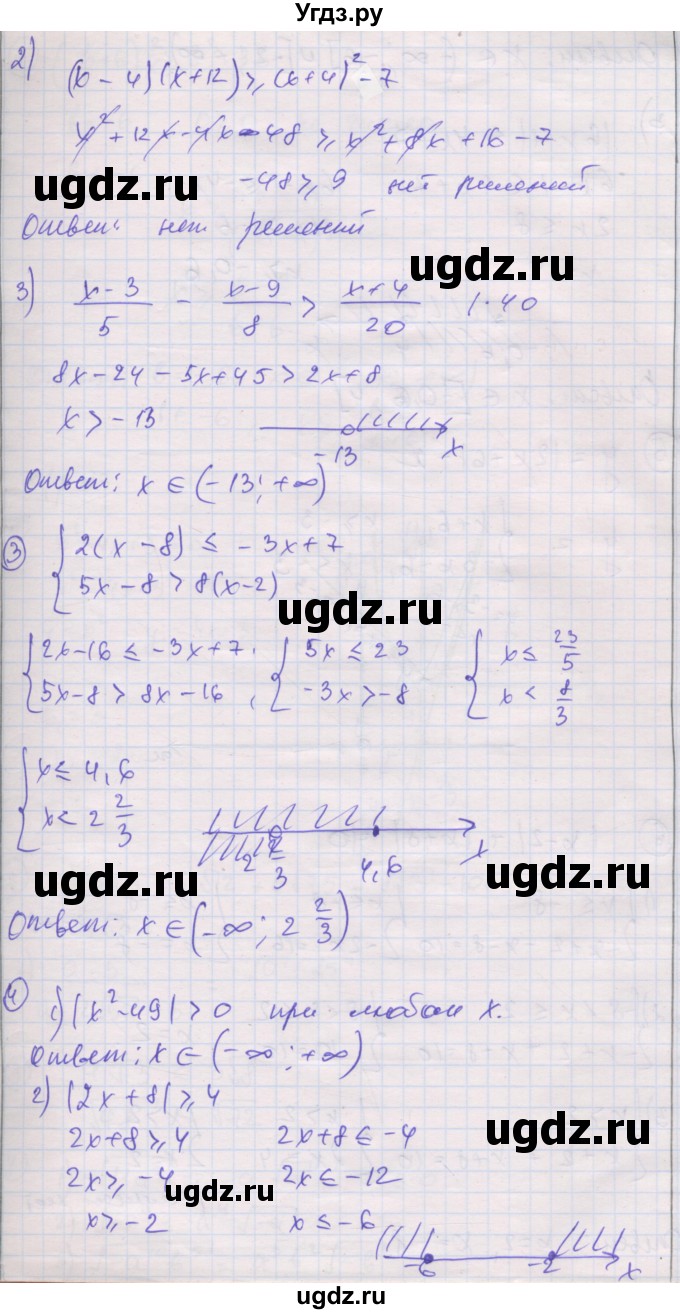 Угдз.ру
2) (x-4)(x+12) ≥ (x+4)² - 7
x² + 12x - 4x - 48 ≥ x² + 8x + 16 - 7
ugdz.ru
-48 ≥ 9 нет решений
ugdz.ru
Ответ: нет решений
ugdz.ru
3) (x-3)/5 - (x-9)/8 > (x+4)/20 | · 40
8x - 24 - 5x + 45 > 2x + 8
x > -13
-13 x
Ответ: x ∈ (-13; +∞)
③ { 2(x-8) ≤ -3x+7
5x-8 > 8(x-2)
ugdz.ru
{ 2x-16 ≤ -3x+7 { 5x ≤ 23 { x ≤ 23/5
5x-8 > 8x-16, -3x > -8 x < 8/3
{ x ≤ 4,6
x < 2 2/3
2 2/3 4,6 x
ugdz.ru
ugdz.ru
Ответ: x ∈ (-∞; 2 2/3)
④ 1) |x²-49| > 0 при любом x.
Ответ: x ∈ (-∞; +∞)
2) |2x+8| ≥ 4
2x+8 ≥ 4 2x+8 ≤ -4
ugdz.ru
2x ≥ -4 2x ≤ -12
ugdz.ru
x ≥ -2 x ≤ -6
-6 -2 x
ugdz.ru